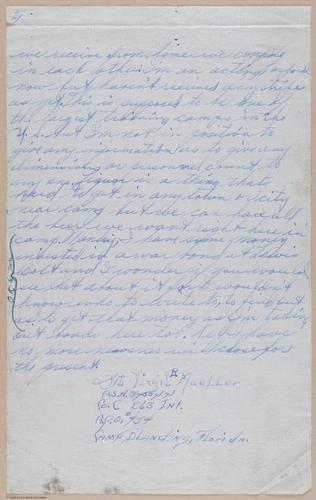 2)
we receive from home we confide
in each other. I'm an acting corporal
now but haven't received any stripes
as yet. This is supposed to be one of
the largest training camps in the
U.S. but I'm not in position to
give any information as to give any
dimensions or personnel count to
any one. Liquor is a thing that's
hard to get in any town or city
near camp but we can have all
the beer we want right here in
camp. Monday, I have some money
invested in a war bond at
and I wonder if you would
see about it for I wouldn't
know who to write to, to find out
as to get that money as I'm taking
out bonds here too. I have
no more news so will close for
the present.
Pvt. Virgil E Mueller
A.S.N.
Co. C 263 Inf.
A.P.O. #454
Camp Blanding, Florida.